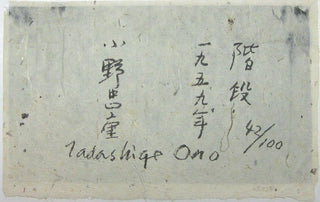 階段 42/100
一九五九年
小野忠重
Tadashige Ono